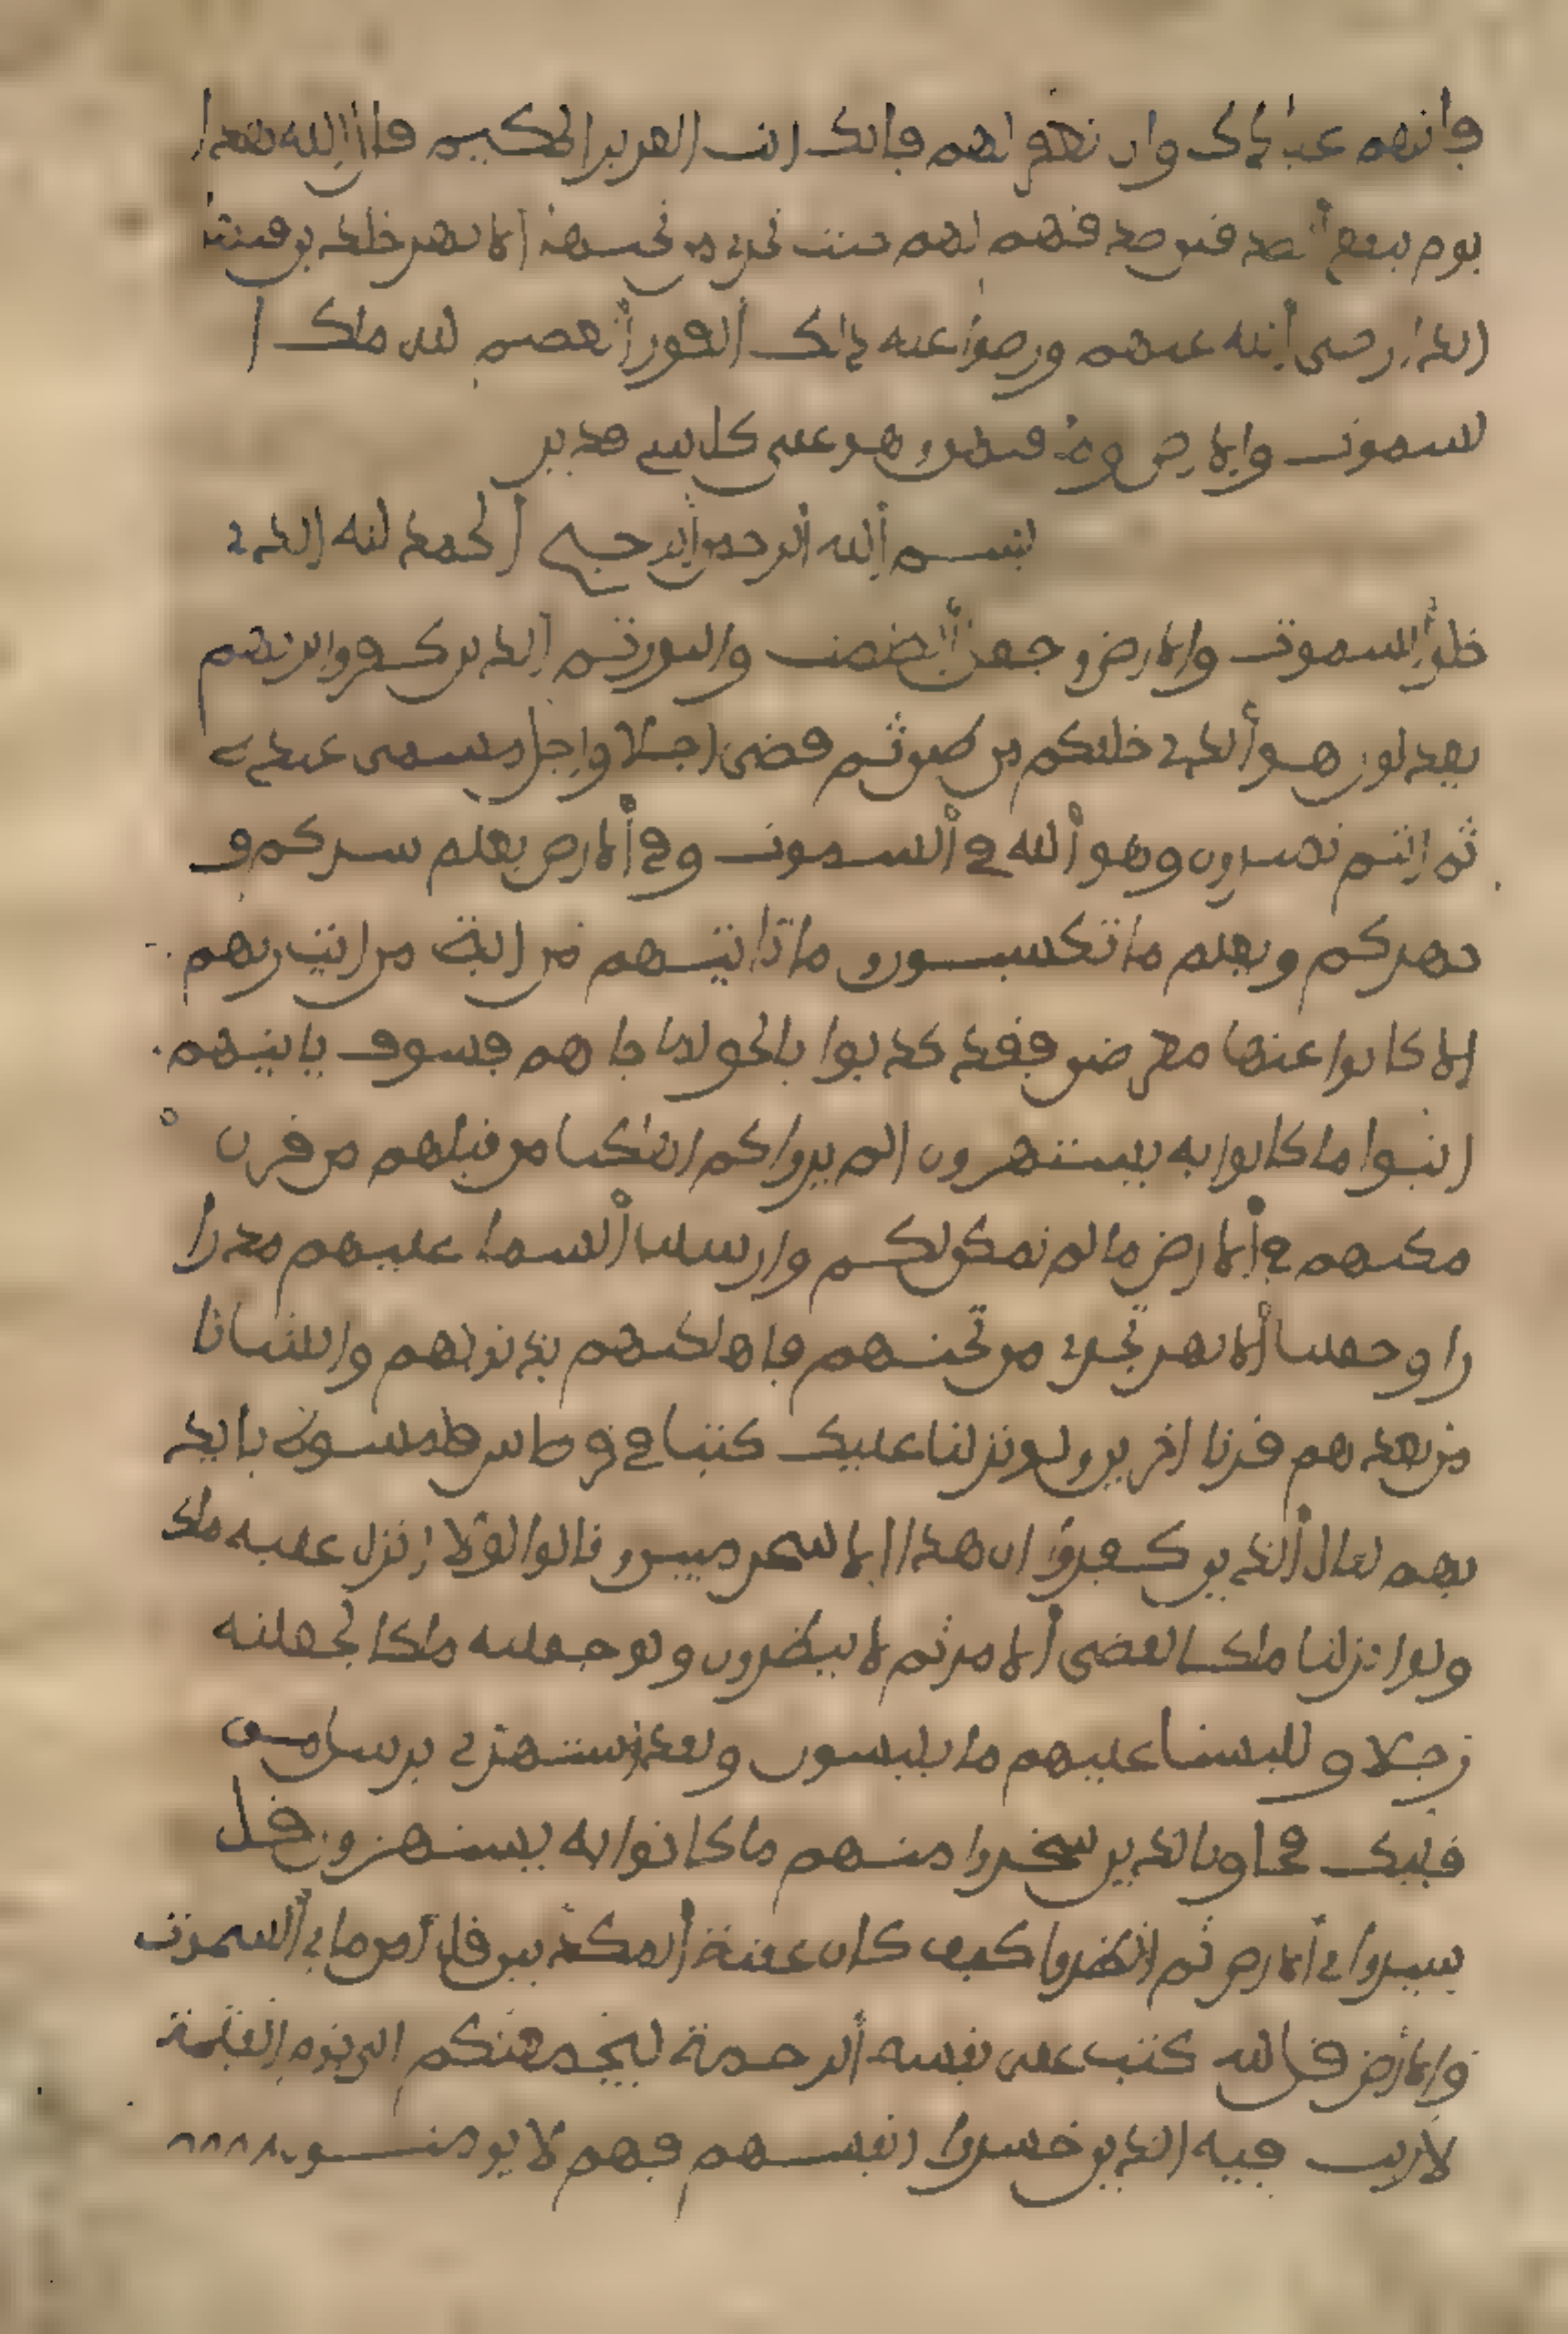 فانهم عبادك وان تغفر لهم فانك انت العزيز الحكيم قال الله هذا
يوم ينفع الصدقين صدقهم لهم جنت تجري من تحتها الانهر خلدين فيها
ابدا رضي الله عنهم ورضوا عنه ذلك الفوز العظيم لله ملك ا
لسموت والارض وما فيهن وهو على كل شي قدير
بسم الله الرحمن الرحيم الحمد لله الذي
خلق السموت والارض وجعل الظلمت والنور ثم الذين كفروا بربهم
يعدلون هو الذي خلقكم من طين ثم قضى اجلا واجل مسمى عنده
ثم انتم تمترون وهو الله في السموت وفي الارض يعلم سركم و
جهركم ويعلم ما تكسبون وما تاتيهم من اية من ايت ربهم
الا كانوا عنها معرضين فقد كذبوا بالحق لما جاهم فسوف ياتيهم
انبوا ما كانوا به يستهزون الم يروا كم اهلكنا من قبلهم من قرن
مكنهم في الارض ما لم نمكن لكم وارسلنا السما عليهم مدرا
را وجعلنا الانهر تجري من تحتهم فاهلكنهم بذنوبهم وانشانا
من بعدهم قرنا اخرين ولو نزلنا عليك كتبا في قرطاس فلمسوه بايد
يهم لقال الذين كفروا ان هذا الا سحر مبين وقالوا لولا انزل عليه ملك
ولو انزلنا ملكا لقضي الامر ثم لا ينظرون ولو جعلنه ملكا لجعلنه
رجلا وللبسنا عليهم ما يلبسون ولقد استهزي برسل من
قبلك فحاق بالذين سخروا منهم ما كانوا به يستهزون قل
سيروا في الارض ثم انظروا كيف كان عقبة المكذبين قل لمن ما في السموت
والارض قل لله كتب على نفسه الرحمة ليجمعنكم الى يوم القيمة
لا ريب فيه الذين خسروا انفسهم فهم لا يومنون